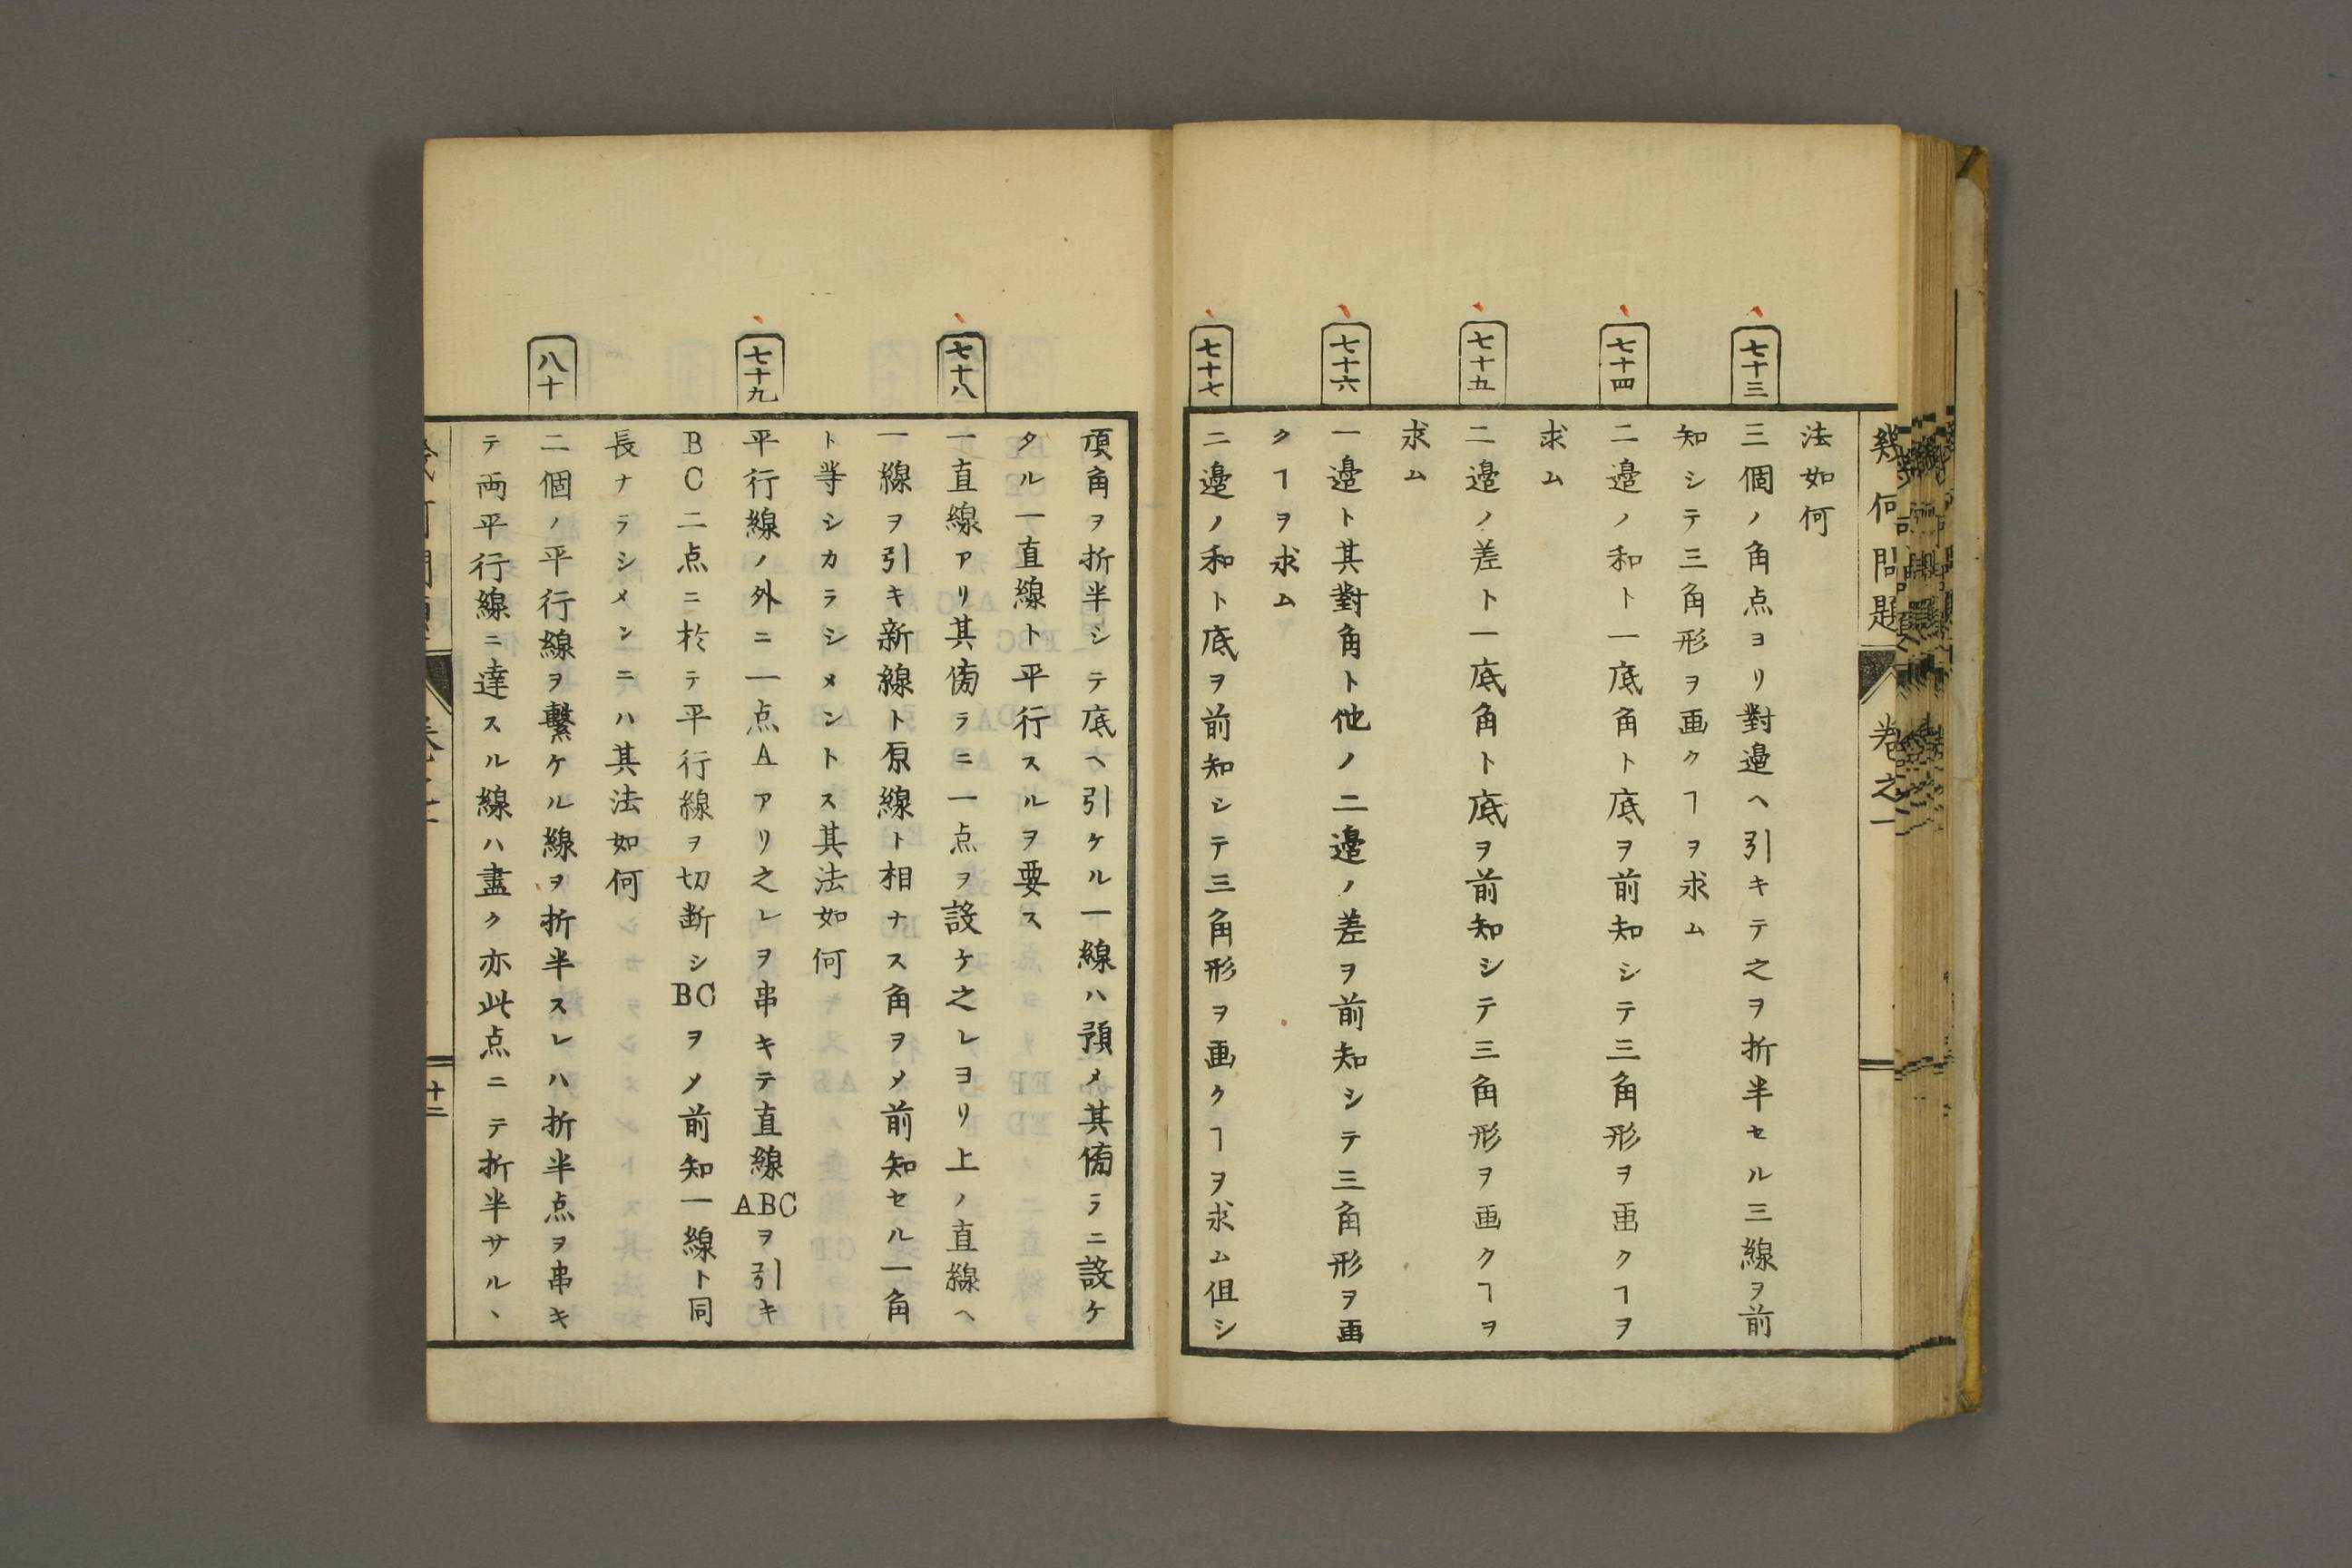 幾何問題
卷之一
法如何
七十三
三個ノ角点ヨリ對邉ヘ引キテ之ヲ折半セル三線ヲ前
知シテ三角形ヲ画クヿヲ求ム
七十四
二邉ノ和ト一底角ト底ヲ前知シテ三角形ヲ画クヿヲ
求ム
七十五
二邉ノ差ト一底角ト底ヲ前知シテ三角形ヲ画クヿヲ
求ム
七十六
一邉ト其對角ト他ノ二邉ノ差ヲ前知シテ三角形ヲ画
クヿヲ求ム
七十七
二邉ノ和ト底ヲ前知シテ三角形ヲ画クヿヲ求ム但シ
頂角ヲ折半シテ底ヘ引ケル一線ハ預メ其傍ラニ設ケ
タル一直線ト平行スルヲ要ス
七十八
一直線アリ其傍ラニ一点ヲ設ケ之レヨリ上ノ直線ヘ
一線ヲ引キ新線ト原線ト相ナス角ヲメ前知セル一角
ト等シカラシメントス其法如何
七十九
平行線ノ外ニ一点Aアリ之レヲ串キテ直線ABCヲ引キ
BC二点ニ於テ平行線ヲ切断シBCヲメ前知一線ト同
長ナラシメンニハ其法如何
八十
二個ノ平行線ヲ繋ケル線ヲ折半スレハ折半点ヲ串キ
テ両平行線ニ達スル線ハ盡ク亦此点ニテ折半サル丶
十二